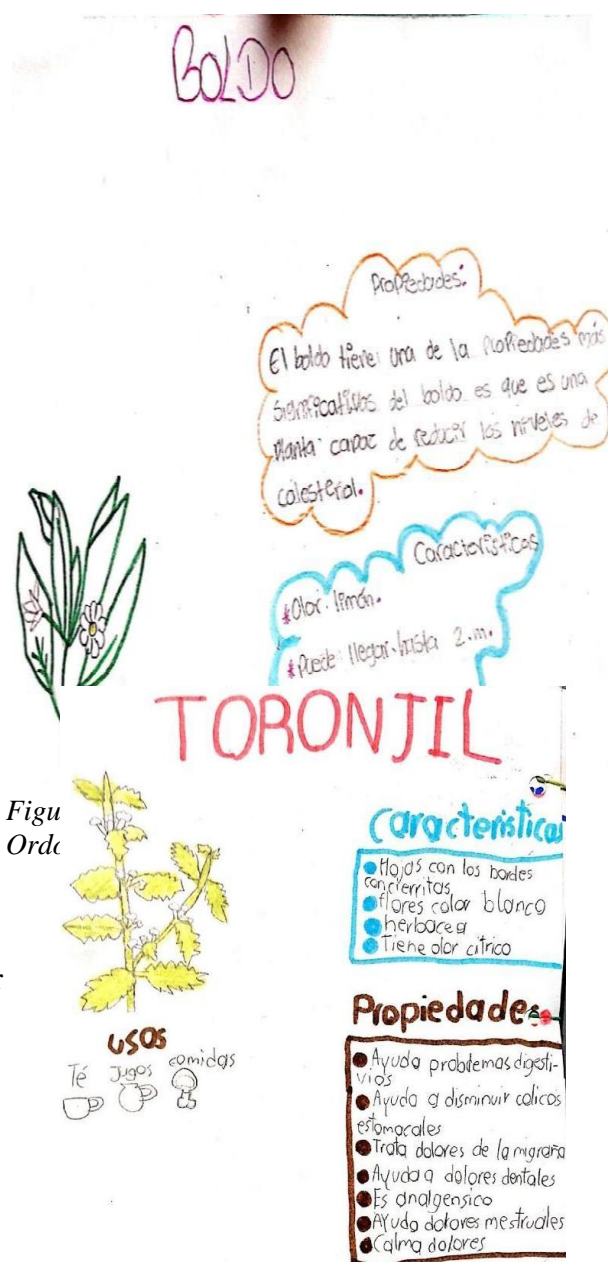 BOLDO
Propiedades:
El boldo tiene una de la propiedades más
significativos del boldo es que es una
planta capaz de reducir los niveles de
colesterol.
Caracteristicas
*Olor limón.
*Puede llegar hasta 2.m.
TORONJIL
Figu
Ordo
caracteristicas
Hojas con los bordes
con cierritas
flores color blanco
herbacea
Tiene olor citrico
usos
Té Jugos comidas
Propiedades
Ayuda problemas digesti-
vios
Ayuda a disminuir colicos
estomacales
Trata dolores de la migraña
Ayuda a dolores dentales
Es analgensico
Ayuda dolores mestruales
Calma dolores